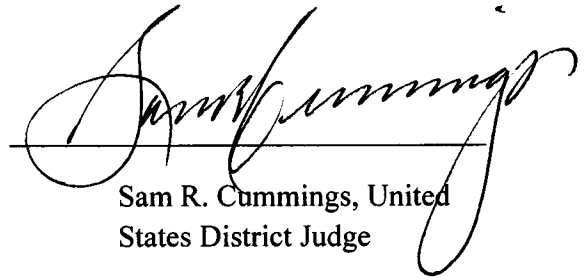 Sam R Cummings
Sam R. Cummings, United
States District Judge